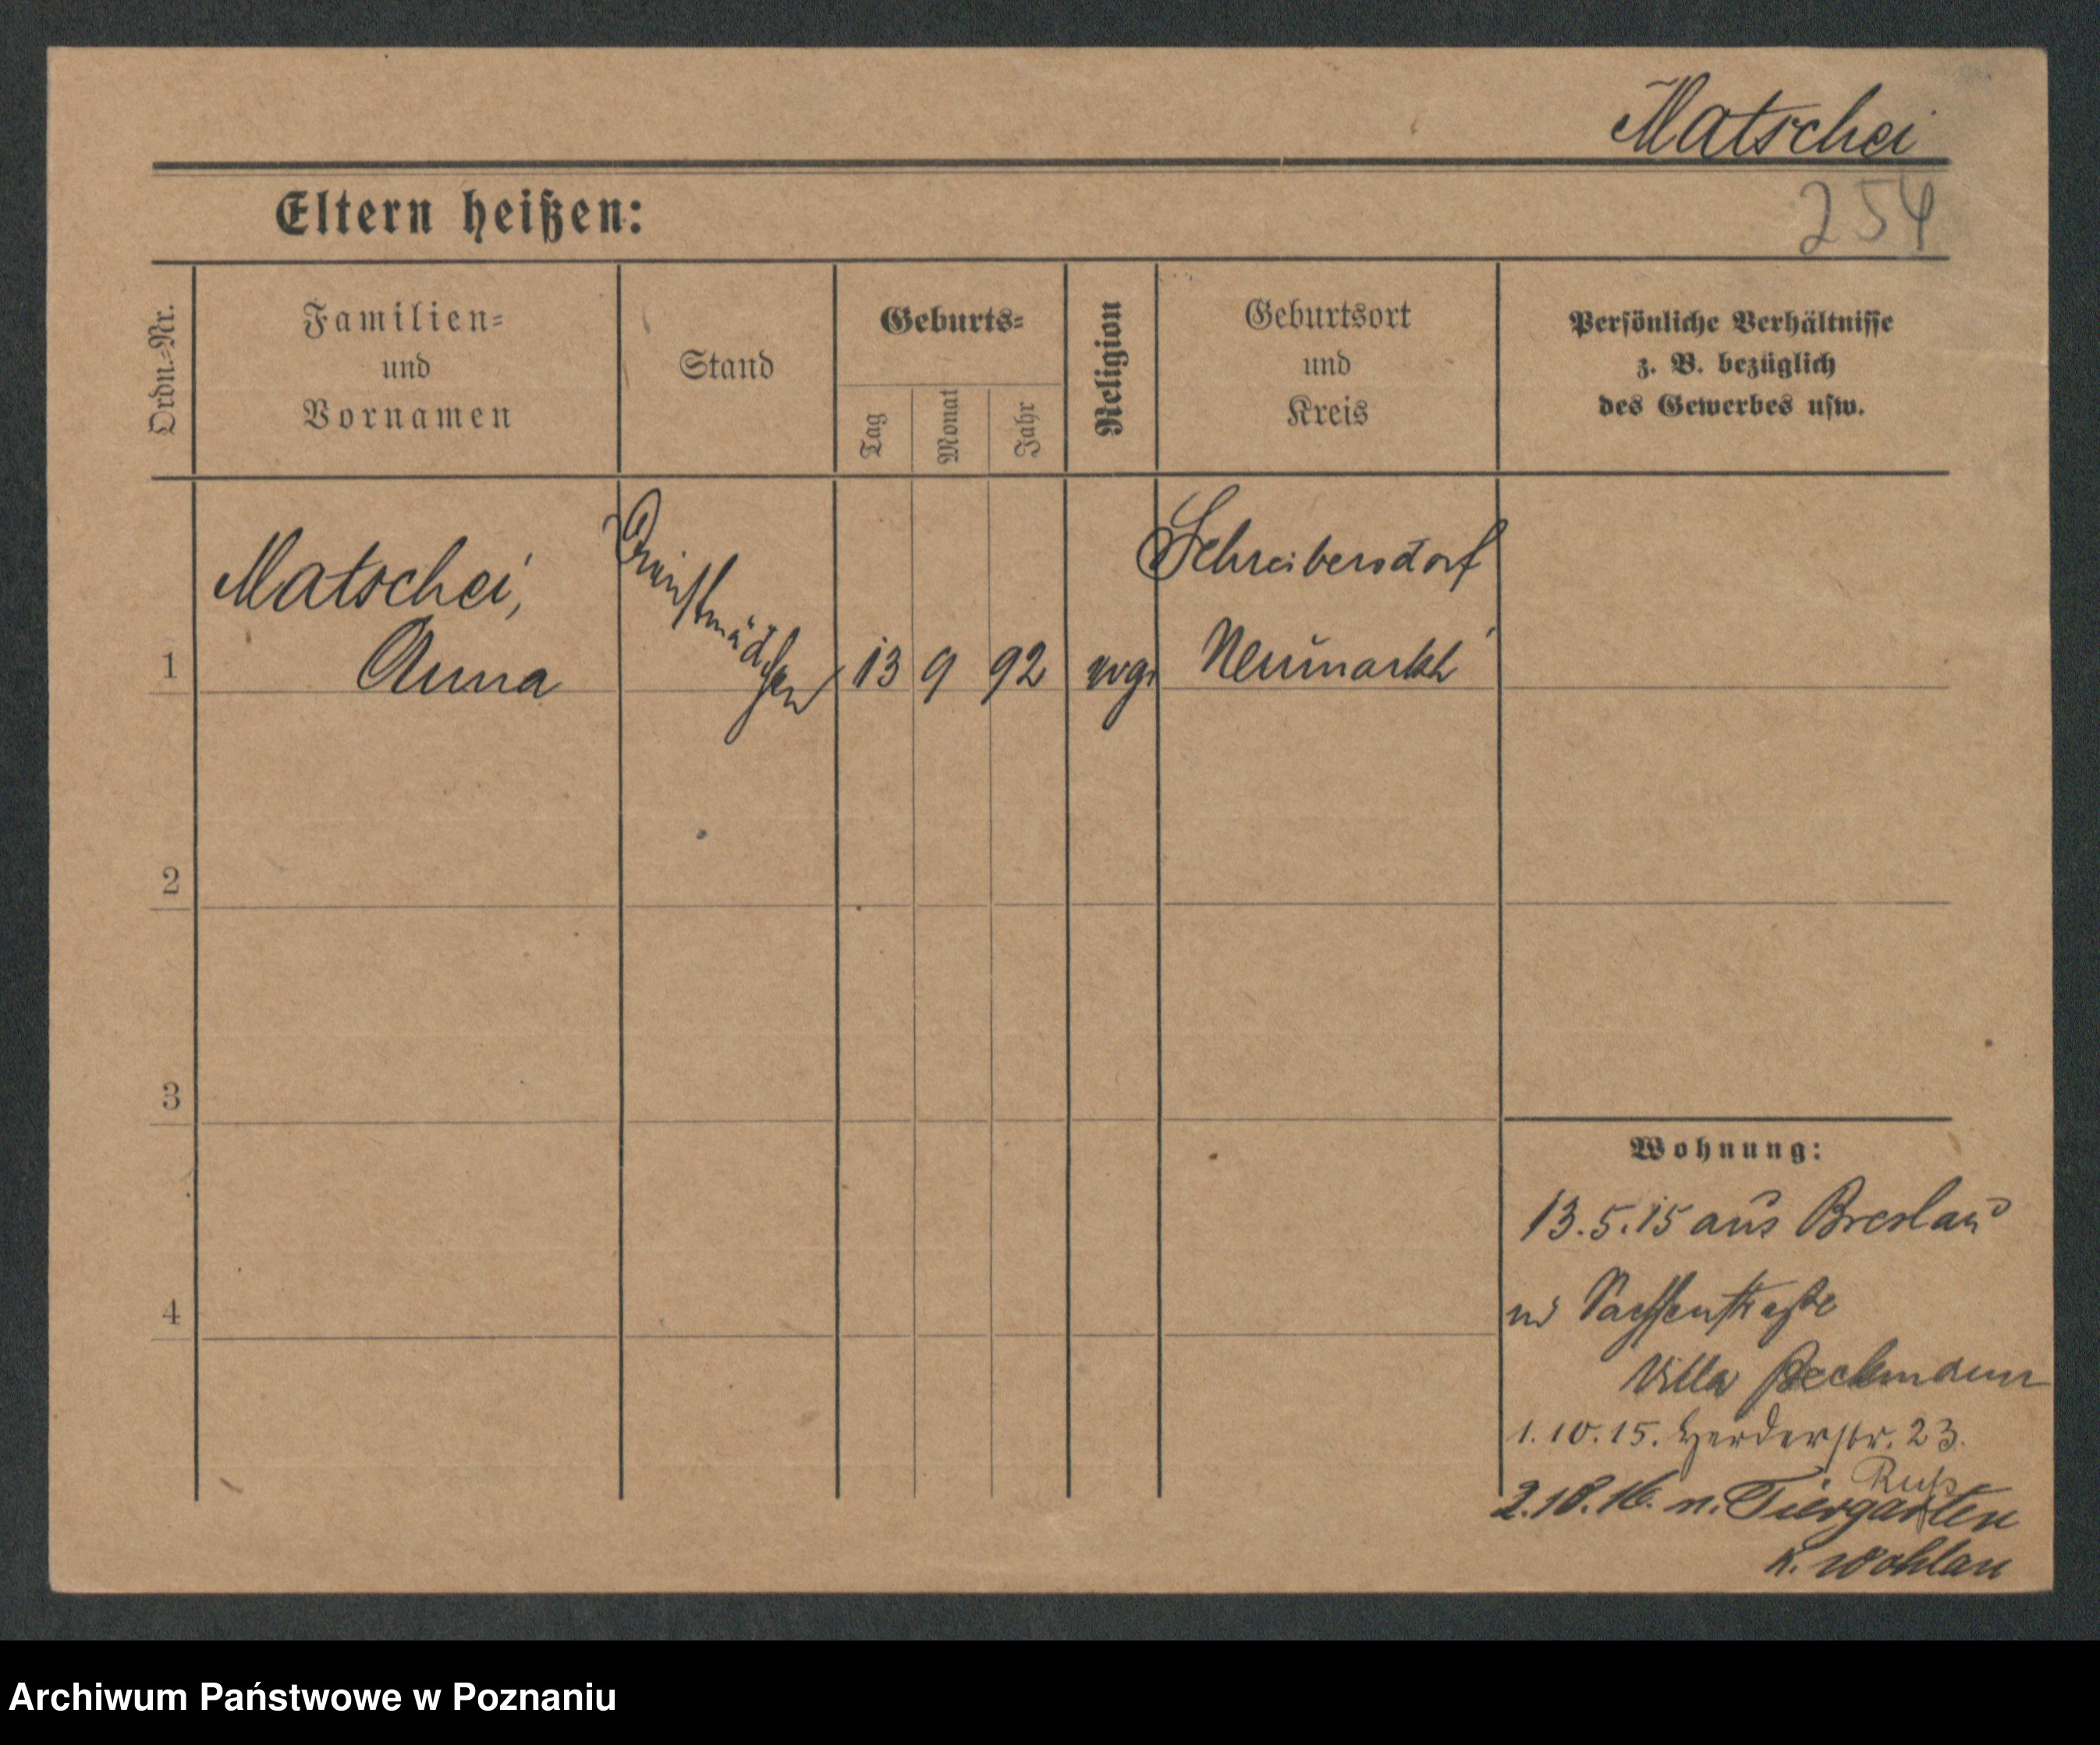 Matschei
254
Eltern heißen:
Ordn.-Nr.
Familien-
und
Vornamen
Stand
Geburts-
Tag
Monat
Jahr
Religion
Geburtsort
und
Kreis
Persönliche Verhältnisse
z. B. bezüglich
des Gewerbes usw.
1
Matschei,
Anna
Dienstmädchen
13 9 92
evg.
Schreibersdorf
Neumarkt
2
3
4
Wohnung:
13.5.15 aus Breslau
Sachsenstraße
Villa Beckmann
1.10.15. Herderstr. 23.
Ruß
2.10.16. n. Tiergarten
K. Wohlau
Archiwum Państwowe w Poznaniu